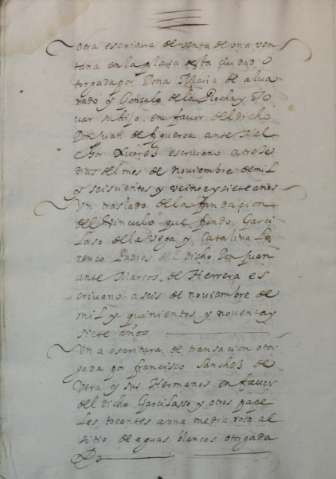 otra escriptura de venta de una ven
tana en la plaza desta ciudad o
torgada por Doña Maria de alua
rado y Gonzalo de la Rocha y To
uar su hijo, en fauor del dicho
Don Juan de figueroa ante
escriuano a
dias del mes de nouiembre de mil
y seiscientos y veinte y siete años
Un traslado de la fundacion
del vinculo que fundo Garci
laso de la Vega y Catalina Lo
renço Padres del dicho Don Juan
ante Marcos de Herrera es
criuano a seis de nouiembre de
mil y quinientos y nouenta y
siete años
Una escritura de transacion otor
gada por francisco Sanchez de
Vera y sus Hermanos en fauor
del dicho Garcilasso y otros pape
les tocantes a una media rosa al
sitio de aguas blancas otorgada